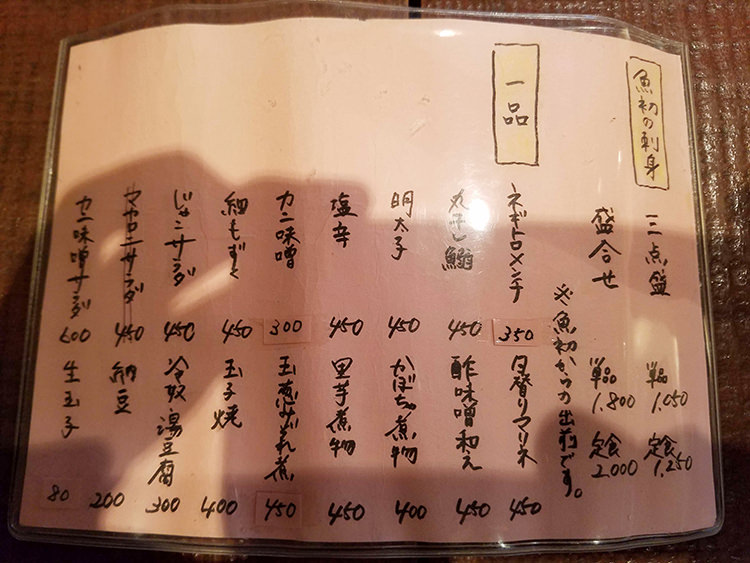 魚初の刺身
三点盛
単品
1.050
定食
1.250
盛合せ
単品
1.800
定食
2.000
※魚初からの出前です。
一品
ネギトロメンチ
350
日替りマリネ
450
丸干し鰯
450
酢味噌和え
450
明太子
450
かぼちゃ煮物
400
塩辛
450
里芋煮物
450
カニ味噌
300
玉葱みぞれ煮
450
細もずく
450
玉子焼
400
じゃこサラダ
450
冷奴 湯豆腐
300
マカロニサラダ
450
納豆
200
カニ味噌サラダ
600
生玉子
80